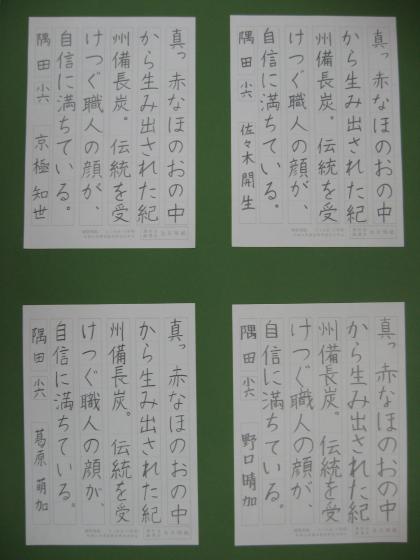 真っ赤なほのおの中
から生み出された紀
州備長炭。伝統を受
けつぐ職人の顔が、
自信に満ちている。
隅田 小六 佐々木開生
真っ赤なほのおの中
から生み出された紀
州備長炭。伝統を受
けつぐ職人の顔が、
自信に満ちている。
隅田 小六 京極知世
真っ赤なほのおの中
から生み出された紀
州備長炭。伝統を受
けつぐ職人の顔が、
自信に満ちている。
隅田 小六 野口晴加
真っ赤なほのおの中
から生み出された紀
州備長炭。伝統を受
けつぐ職人の顔が、
自信に満ちている。
隅田 小六 葛原萌加